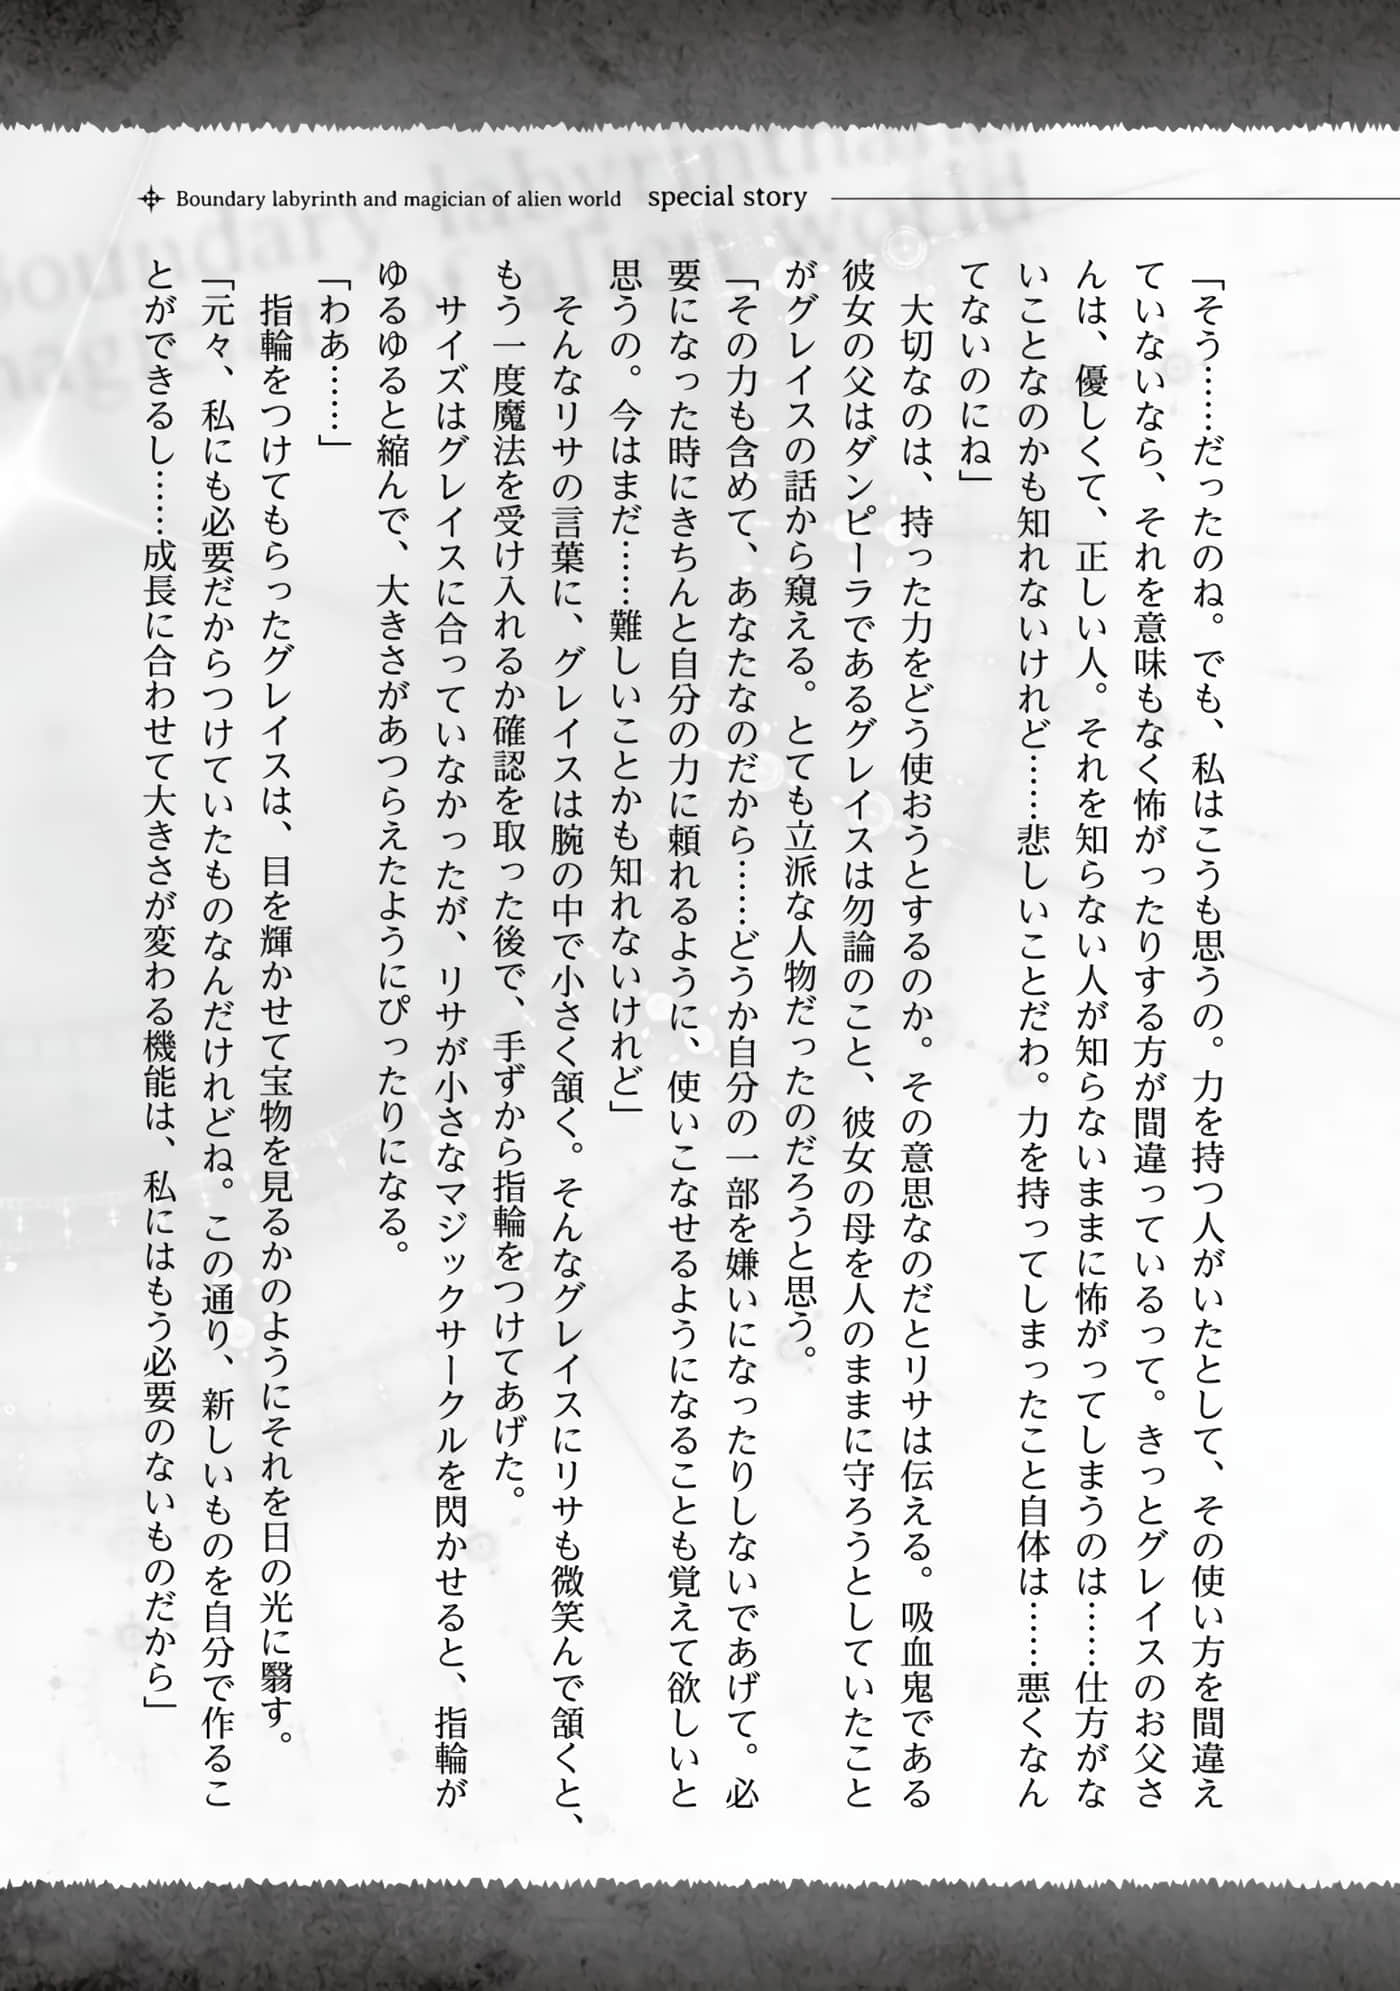 Boundary labyrinth and magician of alien world special story
「そう……だったのね。でも、私はこうも思うの。力を持つ人がいたとして、その使い方を間違え
ていないなら、それを意味もなく怖がったりする方が間違っているって。きっとグレイスのお父さ
んは、優しくて、正しい人。それを知らない人が知らないままに怖がってしまうのは……仕方がな
いことなのかも知れないけれど……悲しいことだわ。力を持ってしまったこと自体は……悪くなん
てないのにね」
　大切なのは、持った力をどう使おうとするのか。その意思なのだとリサは伝える。吸血鬼である
彼女の父はダンピーラであるグレイスは勿論のこと、彼女の母を人のままに守ろうとしていたこと
がグレイスの話から窺える。とても立派な人物だったのだろうと思う。
「その力も含めて、あなたなのだから……どうか自分の一部を嫌いになったりしないであげて。必
要になった時にきちんと自分の力に頼れるように、使いこなせるようになることも覚えて欲しいと
思うの。今はまだ……難しいことかも知れないけれど」
　そんなリサの言葉に、グレイスは腕の中で小さく頷く。そんなグレイスにリサも微笑んで頷くと、
もう一度魔法を受け入れるか確認を取った後で、手ずから指輪をつけてあげた。
　サイズはグレイスに合っていなかったが、リサが小さなマジックサークルを閃かせると、指輪が
ゆるゆると縮んで、大きさがあつらえたようにぴったりになる。
「わあ……」
　指輪をつけてもらったグレイスは、目を輝かせて宝物を見るかのようにそれを日の光に翳す。
「元々、私にも必要だからつけていたものなんだけれどね。この通り、新しいものを自分で作るこ
とができるし……成長に合わせて大きさが変わる機能は、私にはもう必要のないものだから」